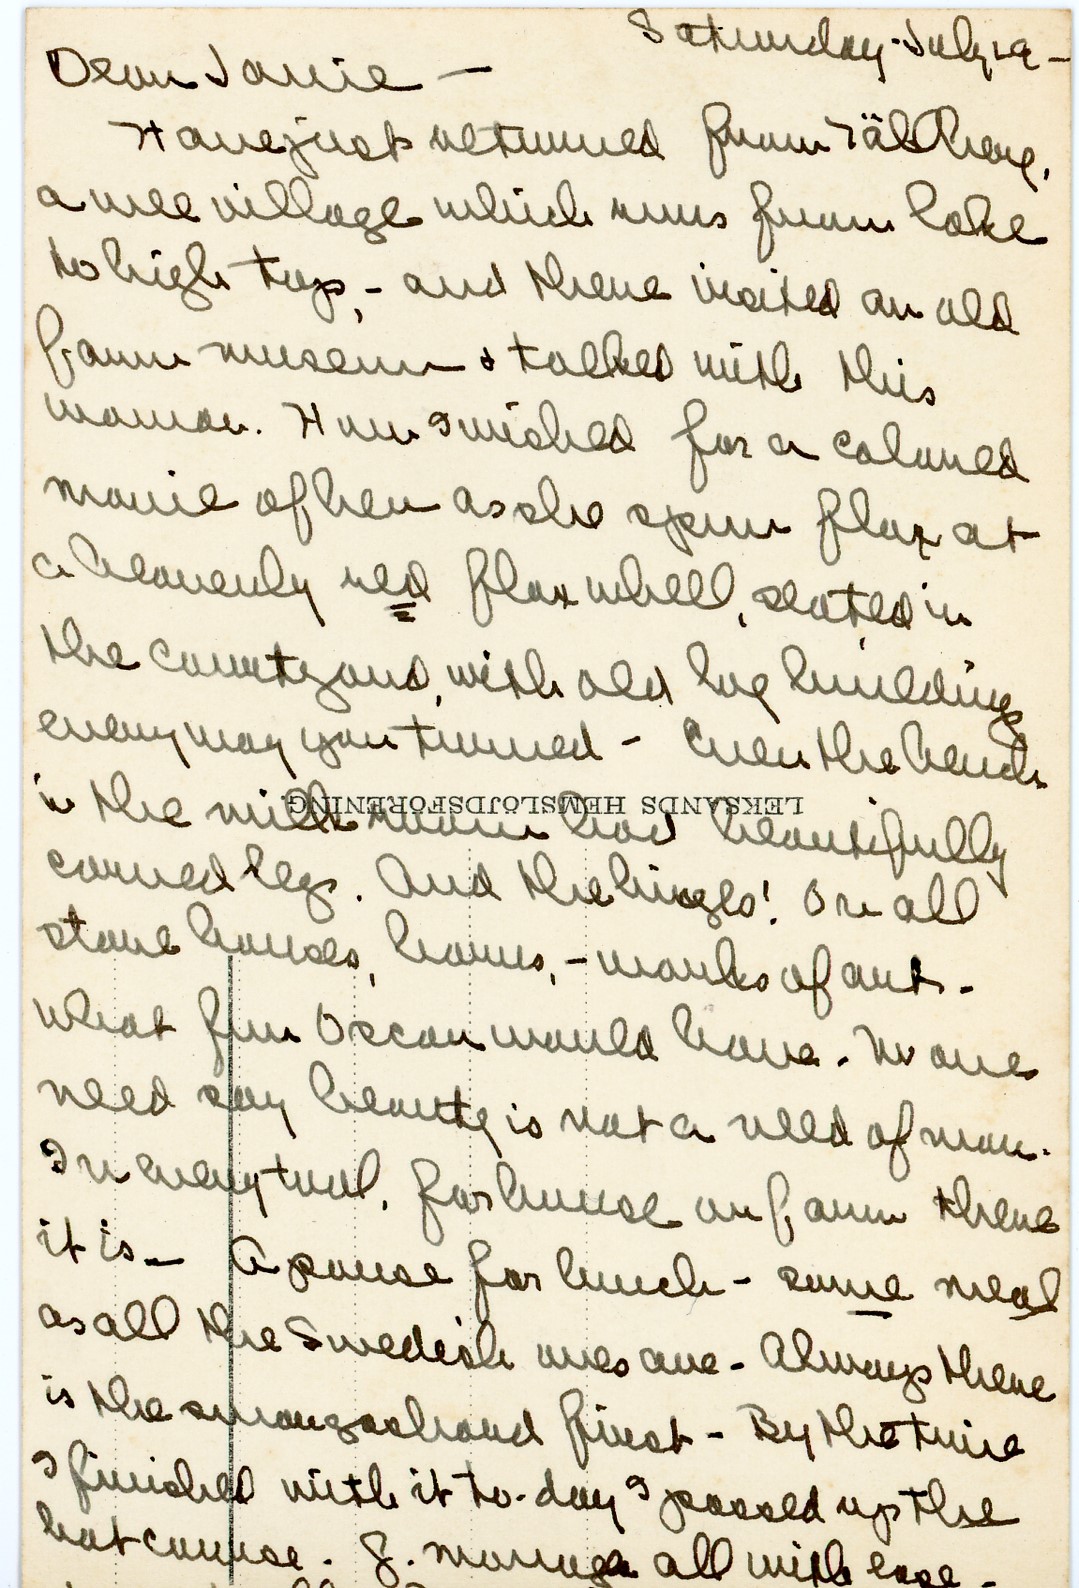 Saturday - July 19 -
Dear Janie -
Have just returned from Tällberg,
a wee village which runs from lake
to high top, - and there visited an old
farm museum & talked with this
woman. How I wished for a colored
movie of her as she spun flax at
a heavenly red flax wheel, seated in
the courtyard, with old log buildings
everyway you turned - Even the bench
in the milk room had beautifully
LEKSANDS HEMSLÖJDSFÖRENING.
carved legs. And the hinges! On all
store houses, barns, - marks of art. -
What fun Oscar would have. No one
need say beauty is not a need of man.
In every tool, for house or farm there
it is - A pause for lunch - some meal
as all the Swedish ones are - Always there
is the smorgasbord first - By the time
I finished with it to-day I passed up the
hot course. S. manages all with ease -